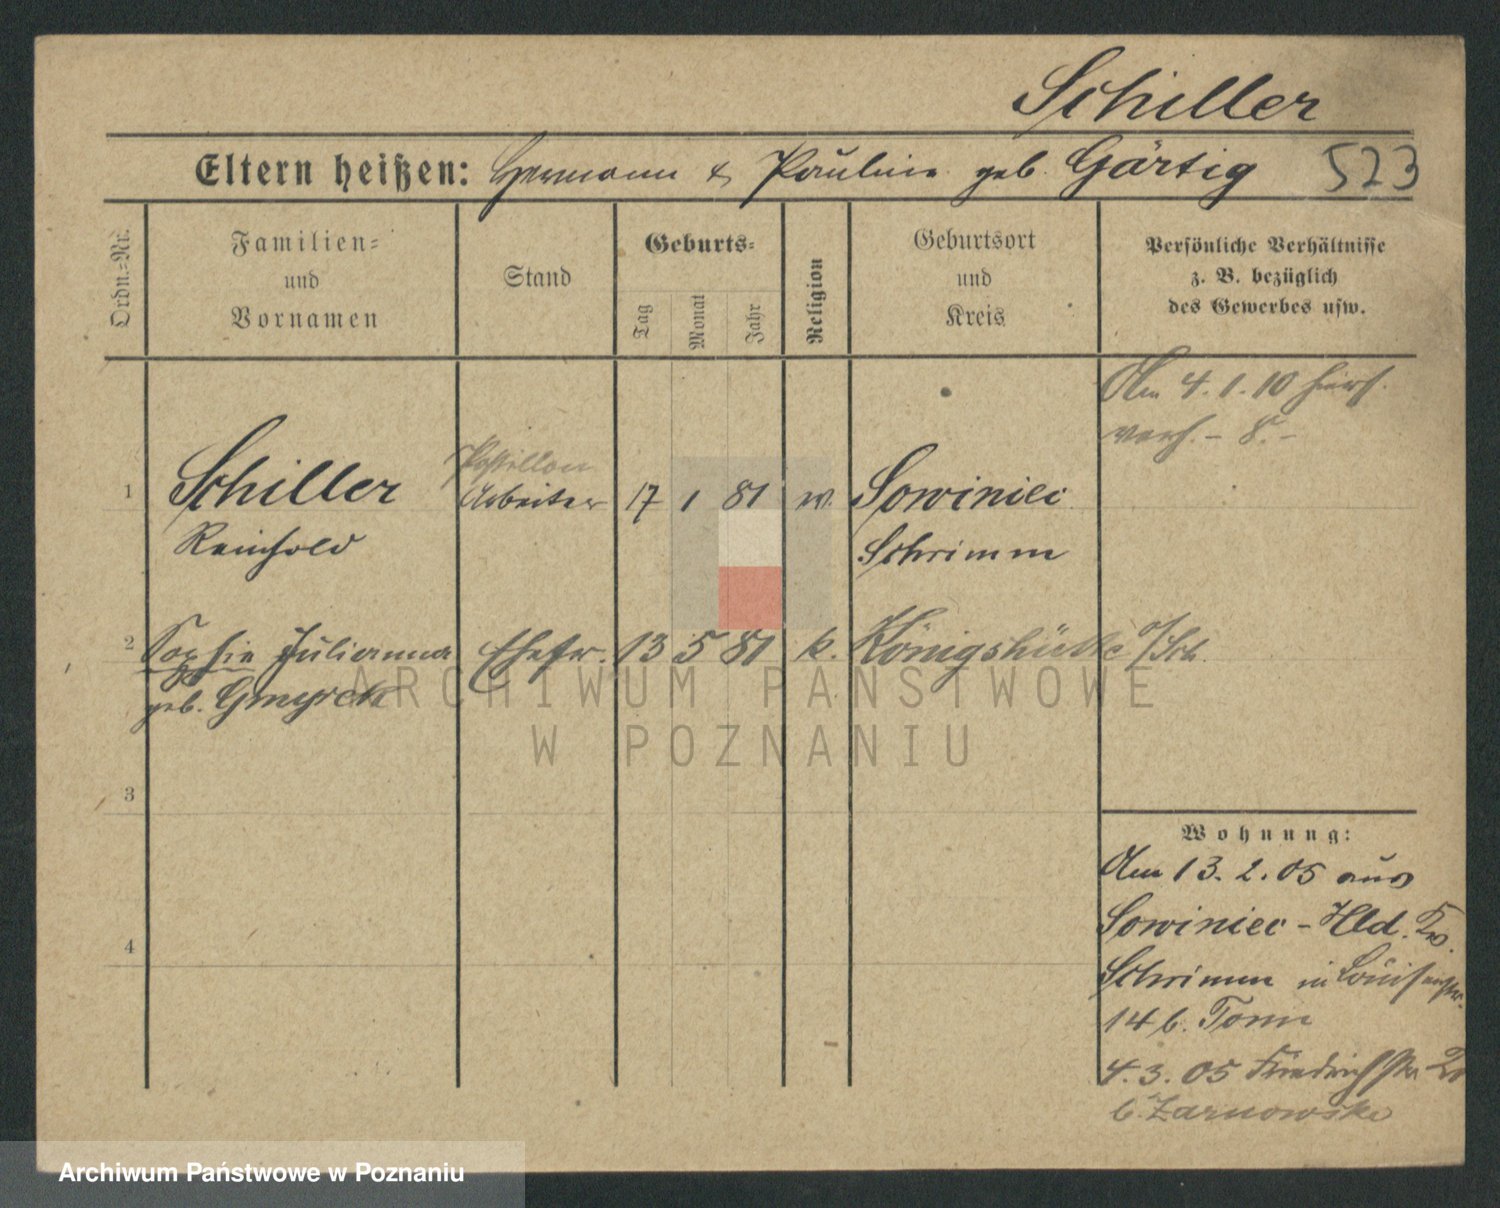 Schiller
Eltern heißen: Hermann & Pauline geb. Gärtig 523
Ordn.-Nr.
Familien-
und
Vornamen
Stand
Geburts-
Tag
Monat
Jahr
Religion
Geburtsort
und
Kreis
Persönliche Verhältnisse
z. B. bezüglich
des Gewerbes usw.
Am 4.1.10 hier
verh. - 8. -
Postillon
1 Schiller Arbeiter 17 1 81 Sowiniec
Reinhold Schrimm
2 Sophie Julianna Ehefr. 13 5 81 k. Königshütte O/Sch.
geb. Gmyrek
3
4
Wohnung:
Am 13.2.05 aus
Sowiniec - Hld. Kr.
Schrimm in Louisenstr.
14 b. Tonn
4.3.05 Friedrichstr
b. Zarnowske
ARCHIWUM PAŃSTWOWE
W POZNANIU
Archiwum Państwowe w Poznaniu